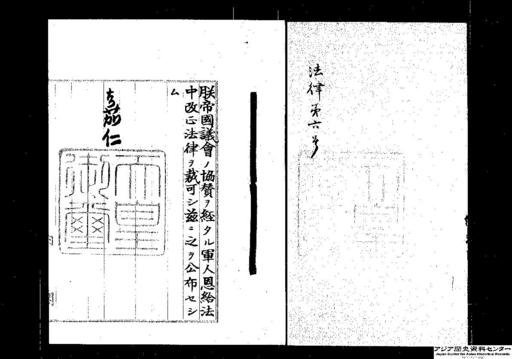 法律第六号
朕帝國議會ノ協贊ヲ經タル軍人恩給法
中改正法律ヲ裁可シ茲ニ之ヲ公布セシ
ム
嘉仁
天皇
御璽
アジア歴史資料センター
Japan Center for Asian Historical Records